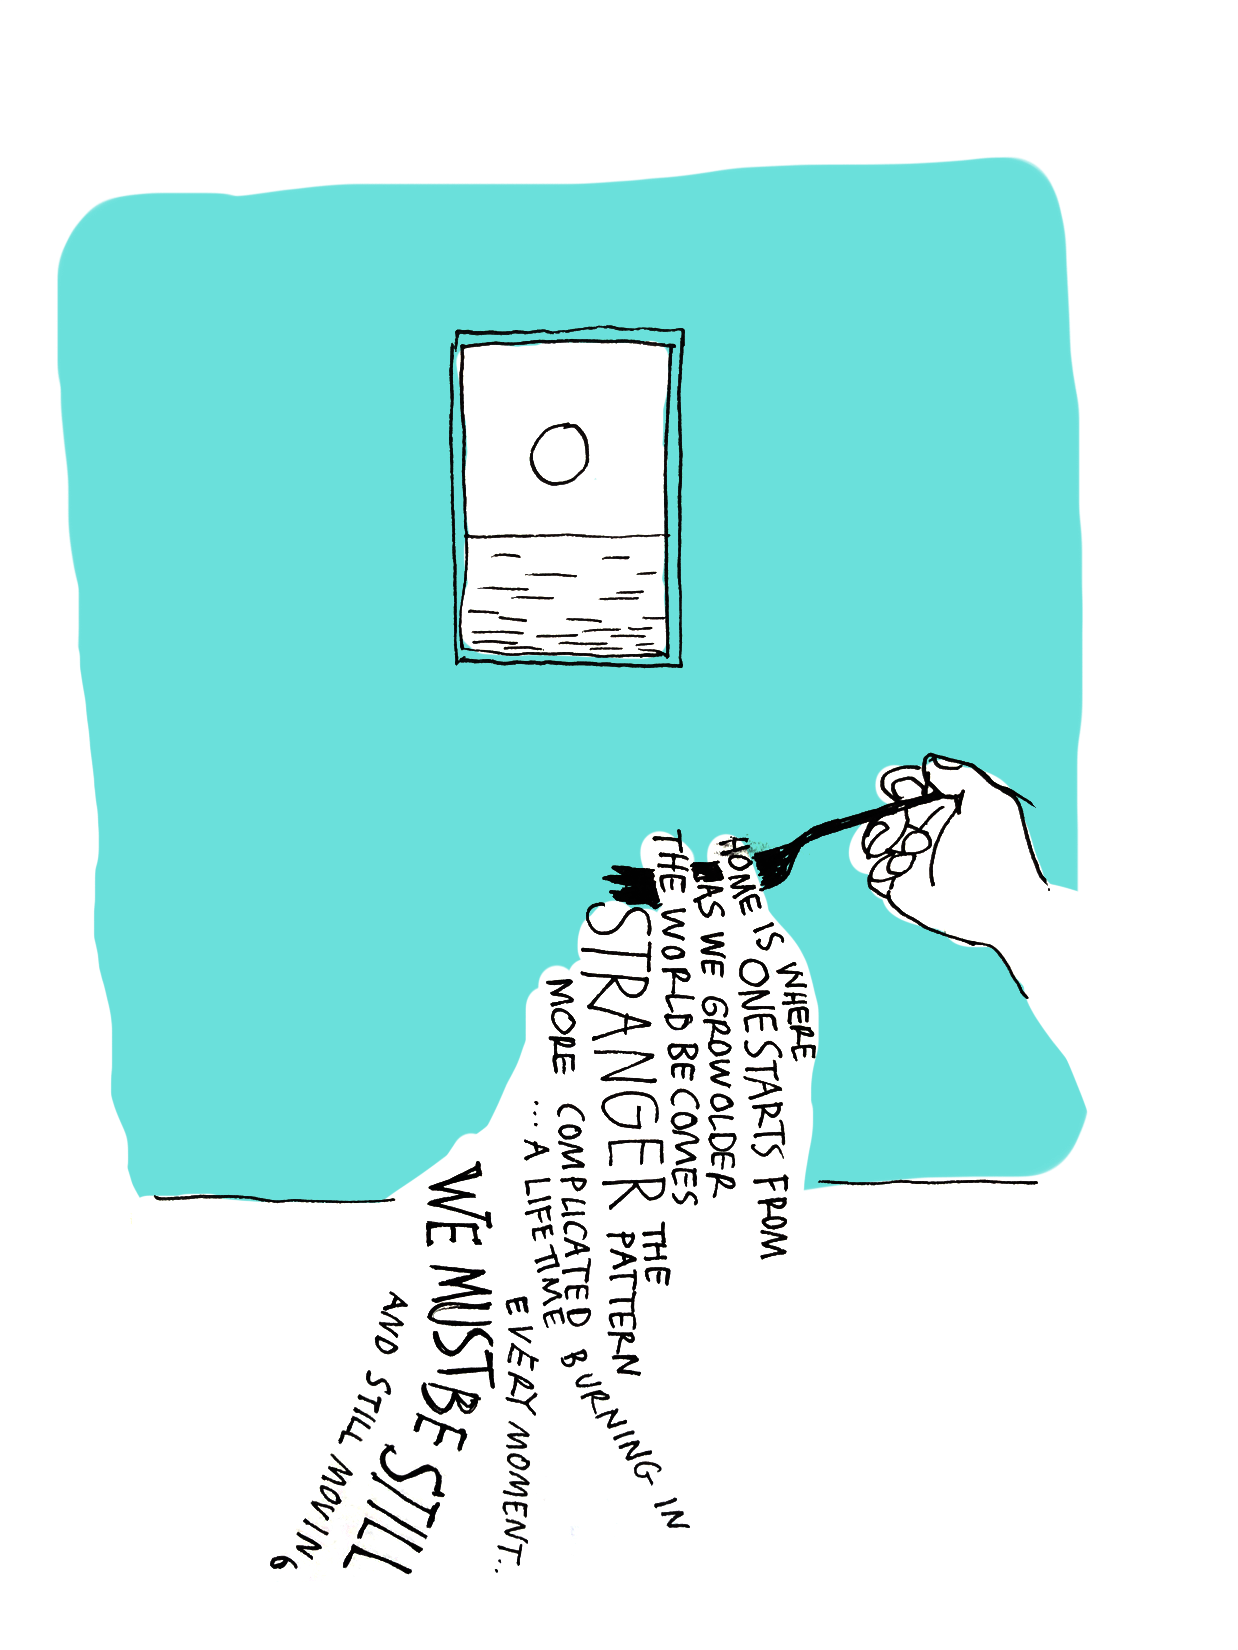 HOME IS WHERE
ONE STARTS FROM
AS WE GROW OLDER
THE WORLD BECOMES
STRANGER THE
PATTERN
MORE COMPLICATED BURNING IN
....A LIFETIME
EVERY MOMENT...
WE MUST BE STILL
AND STILL MOVING